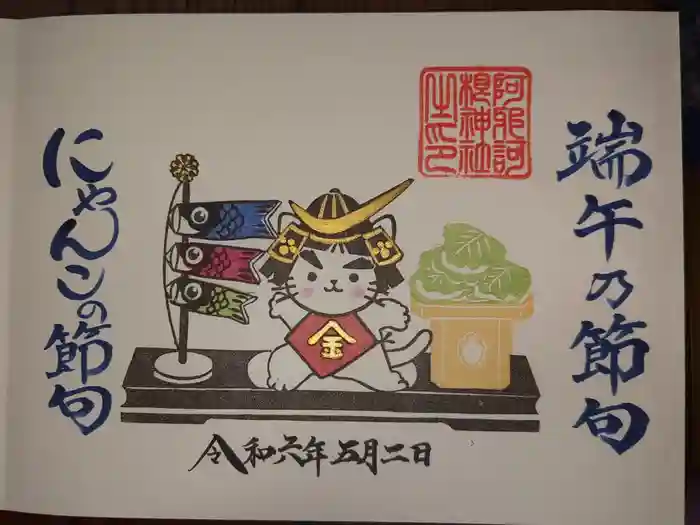 端午乃節句
阿邪訶
根神社
之印
金
にゃんこの節句
令和六年五月二日